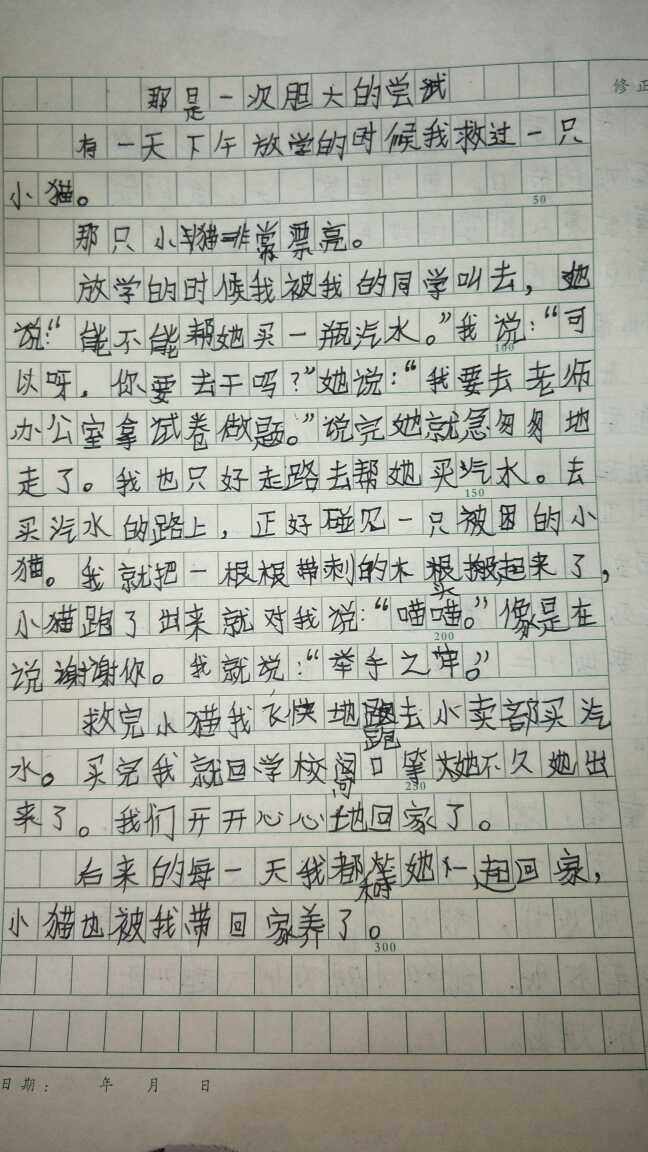 修正
那是一次胆大的尝试
有一天下午放学的时候我救过一只
50
小猫。
那只小猫非常漂亮。
放学的时候我被我的同学叫去，她
说：“能不能帮她买一瓶汽水。”我说：“可
100
以呀，你要去干吗？”她说：“我要去老师
办公室拿试卷做题。”说完她就急匆匆地
走了。我也只好走路去帮她买汽水。去
150
买汽水的路上，正好碰见一只被困的小
猫。我就把一根根带刺的木根搬起来了，
小猫跑了出来就对我说：“喵喵。”像是在
200
说谢谢你。我就说：“举手之牢。”
救完小猫我飞快地跑去小卖部买汽
水。买完我就回学校门口等她不久她出
250
来了。我们开开心心地回家了。
后来的每一天我都和她一起回家，
小猫也被我带回家养了。
300
日期： 年 月 日